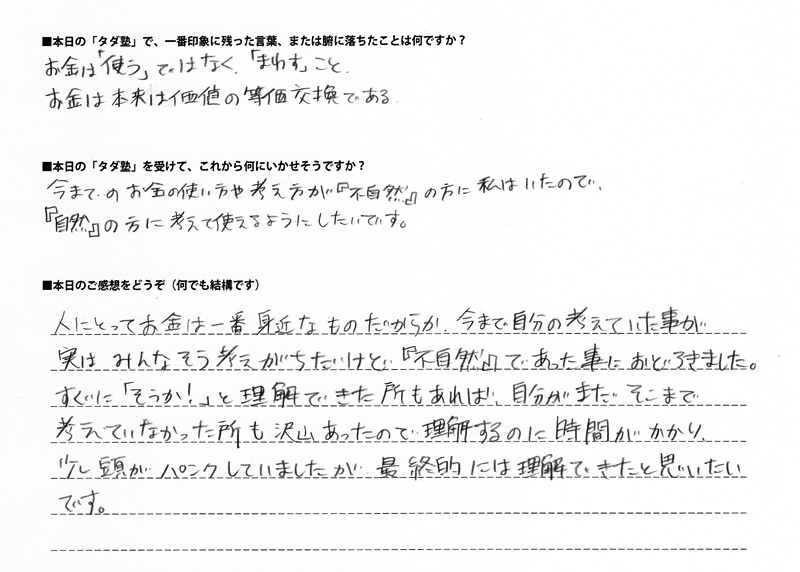 ■本日の「タダ塾」で、一番印象に残った言葉、または腑に落ちたことは何ですか？
お金は「使う」ではなく、「まわす」こと、
お金は本来は価値の等価交換である.
■本日の「タダ塾」を受けて、これから何にいかせそうですか？
今までのお金の使い方や考え方が『不自然』の方に私はいたので、
『自然』の方に考えて使えるようにしたいです。
■本日のご感想をどうぞ（何でも結構です）
人にとってお金は一番身近なものだからか、今まで自分の考えていた事が
実はみんなそう考えがちだけど、『不自然』であった事におどろきました。
すぐに「そうか！」と理解できた所もあれば、自分がまだそこまで
考えていなかった所も沢山あったので理解するのに時間がかかり、
少し頭がパンクしていましたが、最終的には理解できたと思いたい
です。